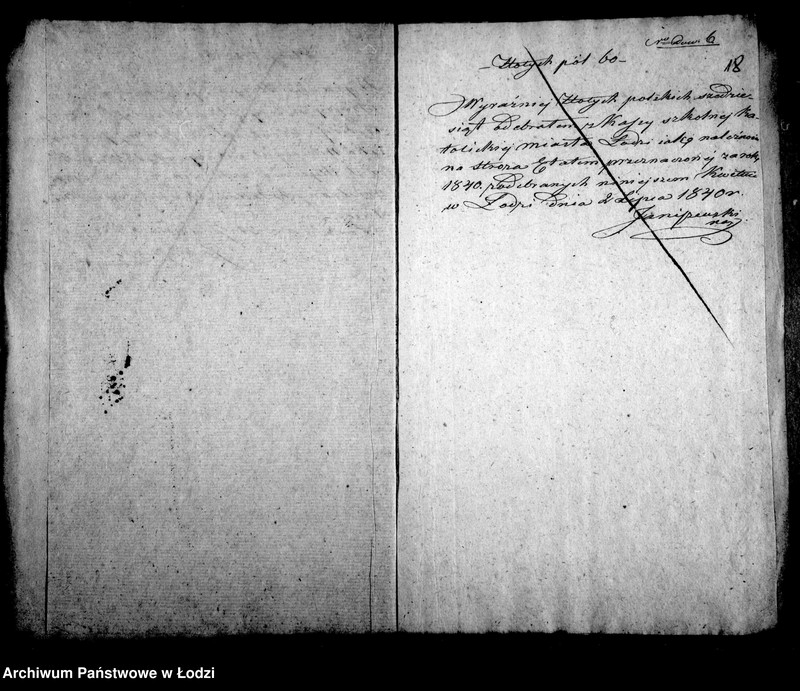 Nro Dowo 6
18
- Złotych pół 60 -
Wyraźniej Złotych polskich sześdzie-
siąt odebrałem z Kassy szkolnej Ka-
tolickiej miasta Łodzi iako należność
na stróża Etatem przeznaczonej za rok
1840. podebranych niniejszem Kwituię
w Łodzi dnia 2 Lipca 1840 r.
Janiszewski
Archiwum Państwowe w Łodzi